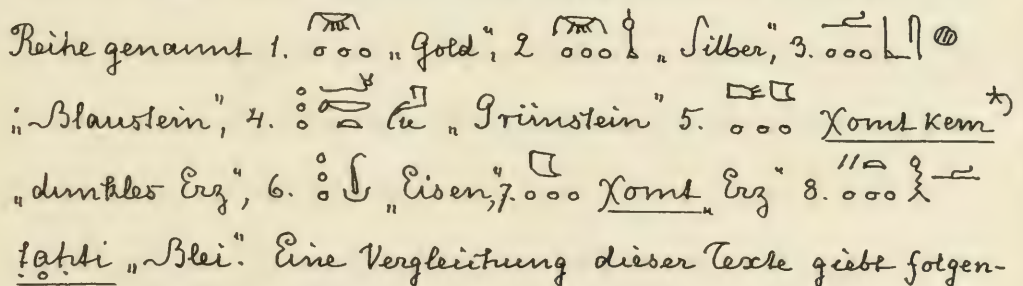 Reihe genannt 1. „Gold", 2 „Silber", 3.
„Blaustein", 4. „Grünstein" 5. Xomt kem *)
„dunkles Erz", 6. „Eisen," 7. Xomt „Erz" 8.
tahti „Blei". Eine Vergleichung dieser Texte giebt folgen-